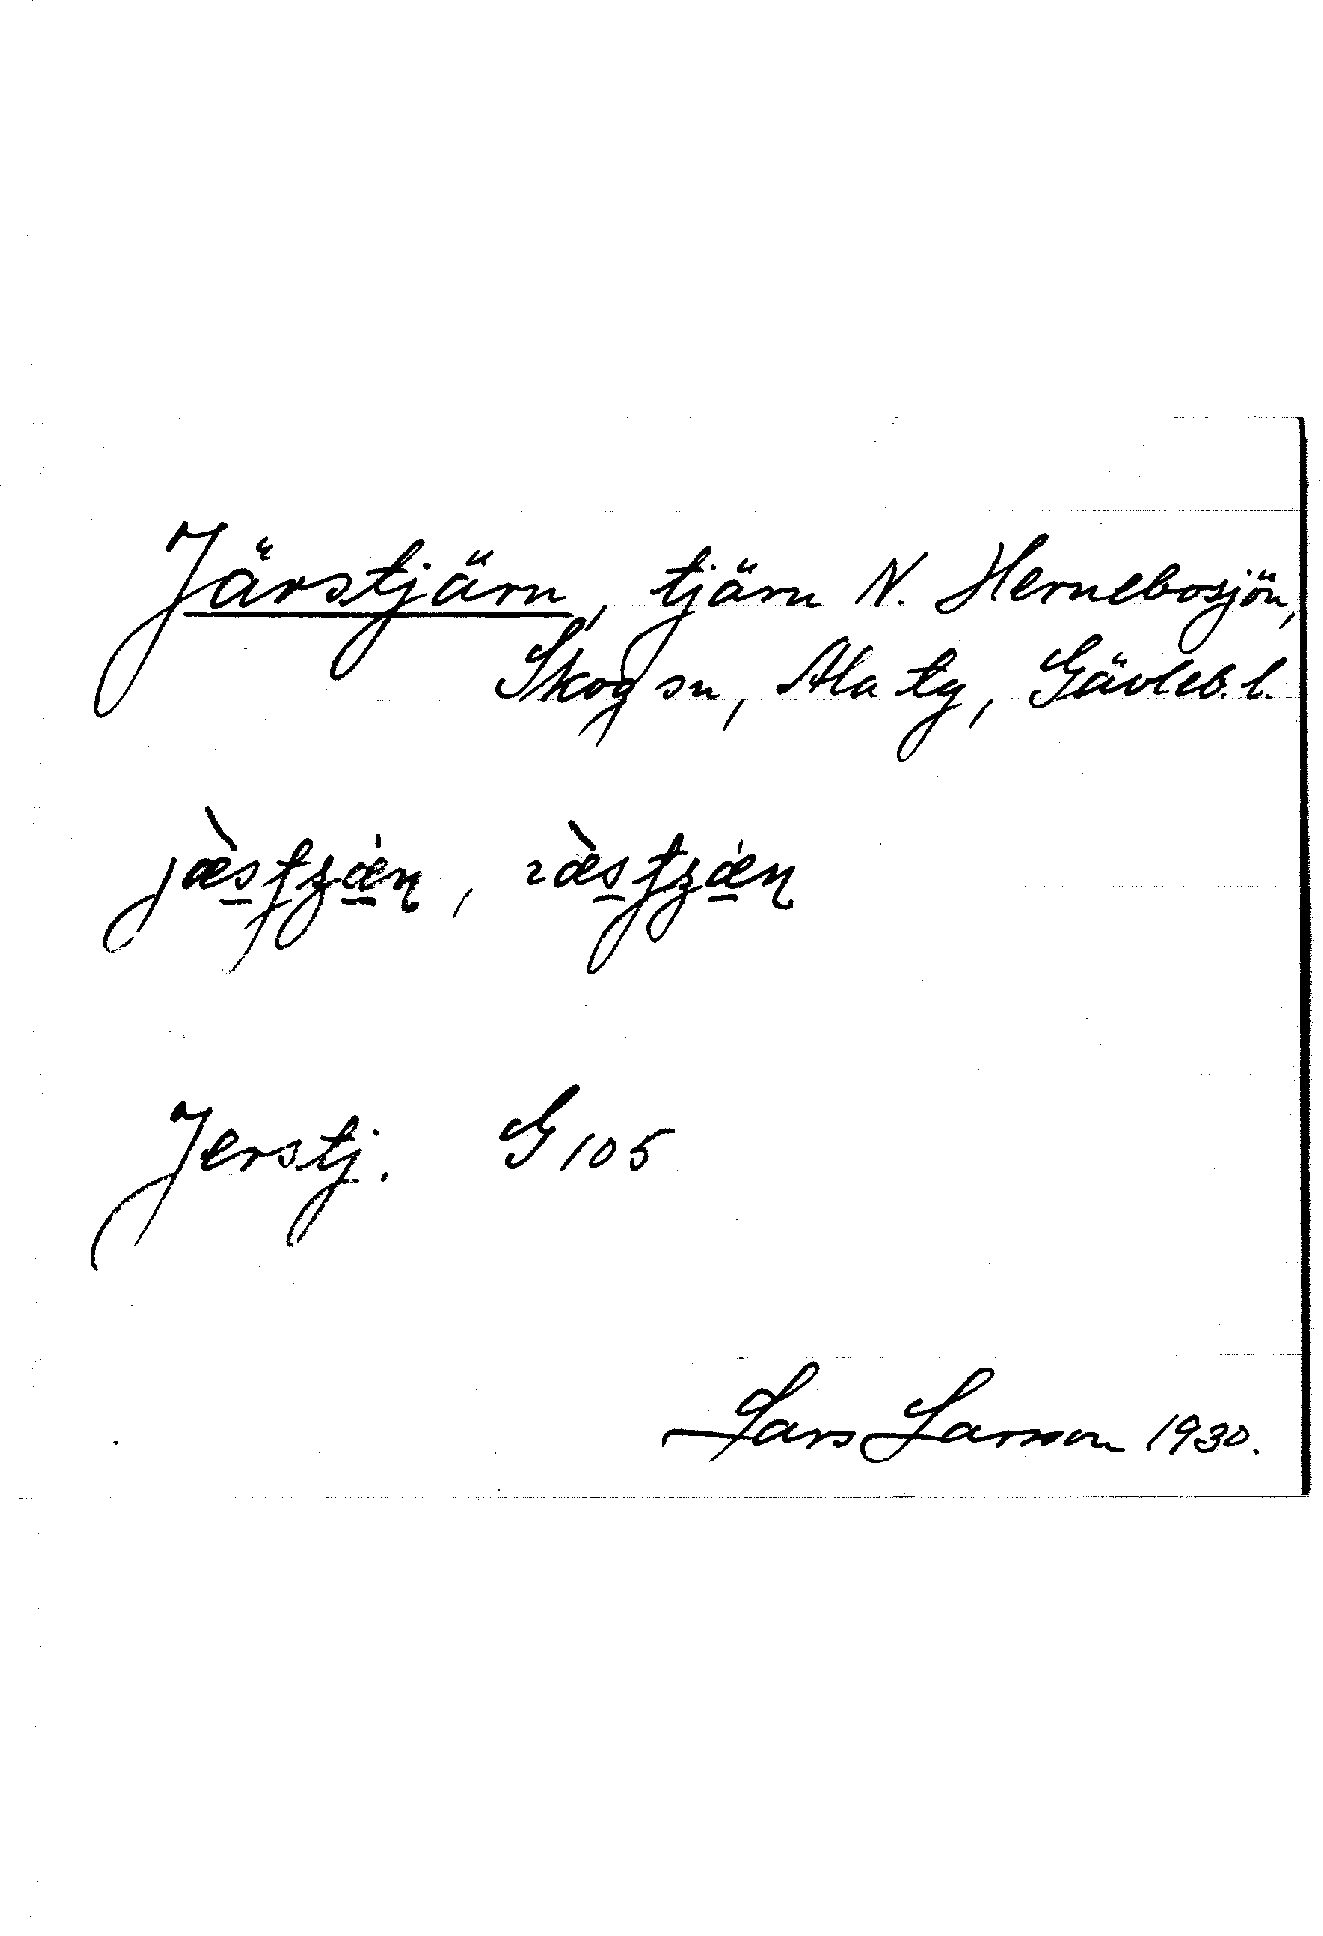 Järstjärn, tjärn N. Hernebosjön,
Skog sn, Ala tg, Gävleb. l.
Jerstj. G 105
Lars Larsson 1930.